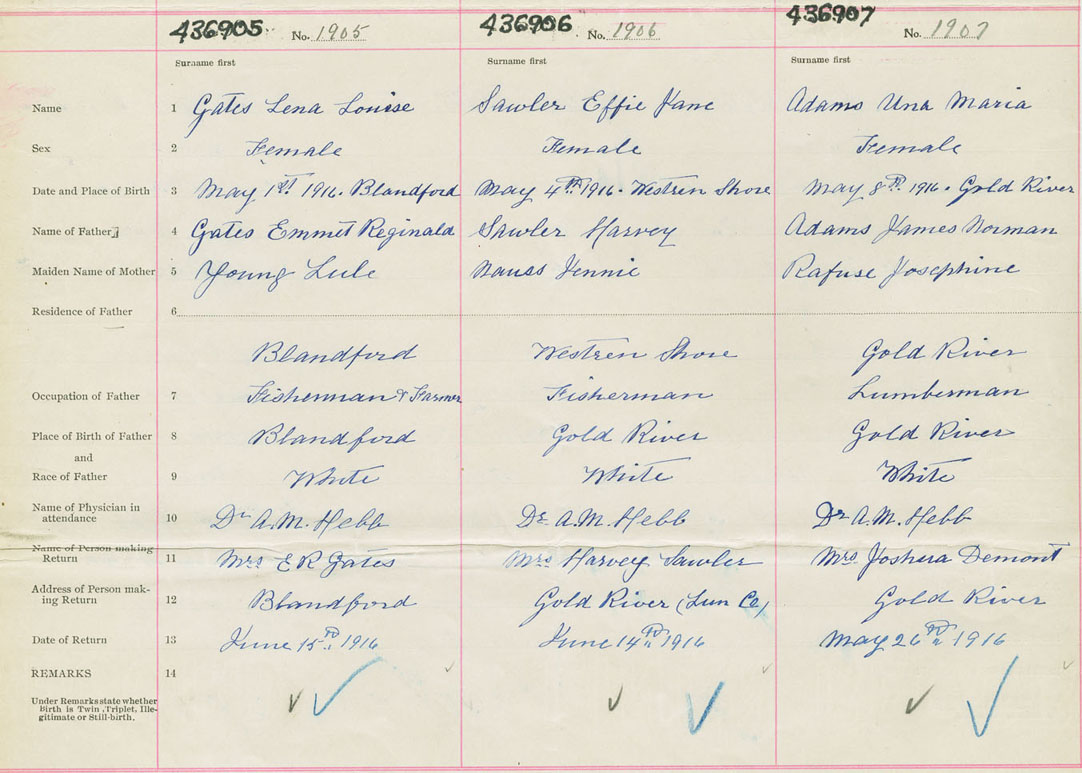 436905 No. 1905 436906 No. 1906 436907 No. 1907
Surname first Surname first Surname first
Name 1 Gates Lena Louise Sawler Effie Jane Adams Una Maria
Sex 2 Female Female Female
Date and Place of Birth 3 May 1st 1916. Blandford May 4th 1916. Westren Shore May 8th 1916. Gold River
Name of Father 4 Gates Emmet Reginald Sawler Harvey Adams James Norman
Maiden Name of Mother 5 Young Lule Nauss Jennie Rafuse Josephine
Residence of Father 6
Blandford Westren Shore Gold River
Occupation of Father 7 Fisherman & Farmer Fisherman Lumberman
Place of Birth of Father 8 Blandford Gold River Gold River
and
Race of Father 9 White White White
Name of Physician in
attendance 10 Dr A.M. Hebb Dr A.M. Hebb Dr A.M. Hebb
Name of Person making
Return 11 Mrs E R Gates Mrs Harvey Sawler Mrs Joshua Demont
Address of Person mak-
ing Return 12 Blandford Gold River (Lun Co) Gold River
Date of Return 13 June 15th 1916 June 14th 1916 May 26th 1916
REMARKS 14
Under Remarks state whether
Birth is Twin, Triplet, Ille-
gitimate or Still-birth.